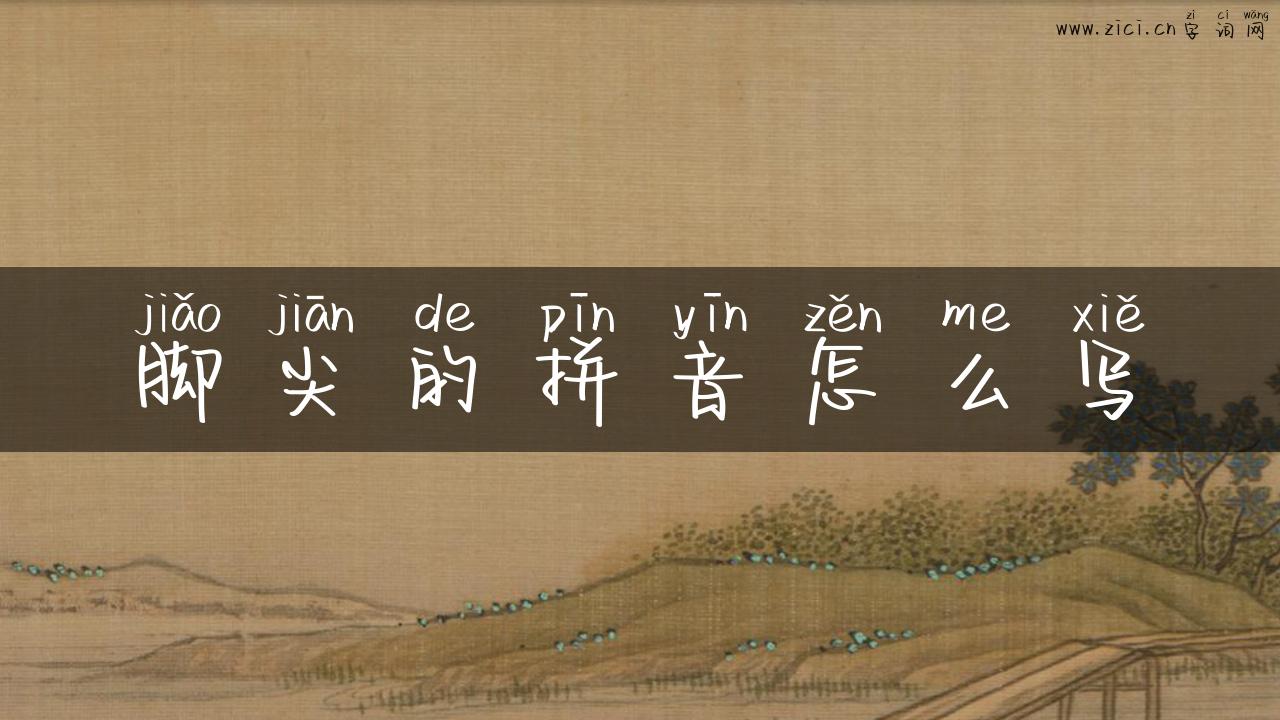 zì cí wǎng
www.zici.cn字词网
jiǎo jiān de pīn yīn zěn me xiě
脚尖的拼音怎么写